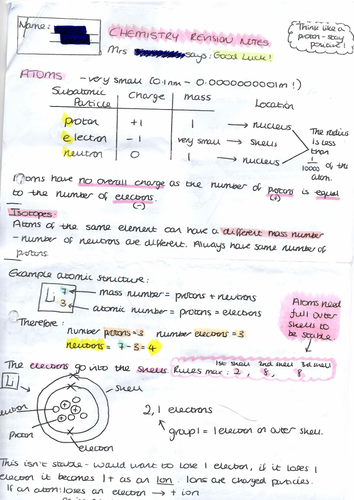 Name:
CHEMISTRY REVISION NOTES
Mrs says: Good Luck!
Think like a proton - stay positive!
ATOMS - very small (0.1nm - 0.0000000001m!)
Subatomic Particle Charge mass Location
proton +1 1 → nucleus
electron -1 very small → shells
neutron 0 1 → nucleus
The radius is less than 1/10000 of the atom.
Atoms have no overall charge as the number of protons is equal
(+)
to the number of electrons.
(-)
Isotopes:
Atoms of the same element can have a different mass number
- number of neutrons are different. Always have same number of
protons
Example atomic structure:
Li 7 3
→ mass number = protons + neutrons
→ atomic number = protons = electrons
Therefore:
number protons = 3 number electrons = 3
neutrons = 7 - 3 = 4
Atoms need full outer shells to be stable
The electrons go into the shells.
1st shell 2nd shell 3rd shell
Rules max: 2, 8, 8
Li
shell
neutron
proton
electron
2,1 electrons
group 1 = 1 electron on outer shell.
This isn't stable - would want to lose 1 electron, if it loses 1
electron it becomes 1+ as an Ion. Ions are charged particles.
If an atom: loses an electron → + ion